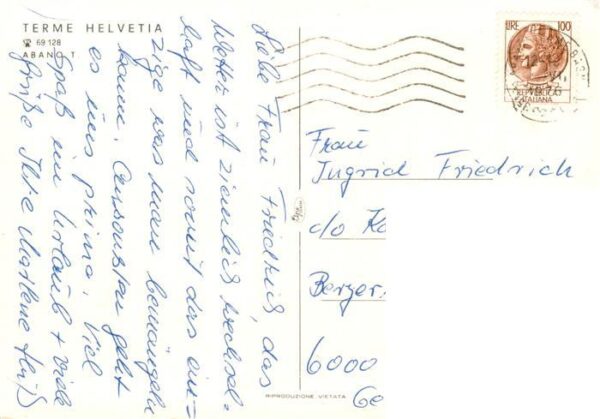 TERME HELVETIA
☎ 69 128
ABANO T
Liebe Frau Friedrich, das
Wetter ist ziemlich wechsel=
haft und somit das ein=
zige was man bemängeln
kann. Ansonsten geht
es uns prima. Viel
Spaß im Urlaub + viele
Grüße Ihre Marlene
LIRE 100
REPUBBLICA
ITALIANA
Frau
Ingrid Friedrich
c/o
6000
RIPRODUZIONE VIETATA